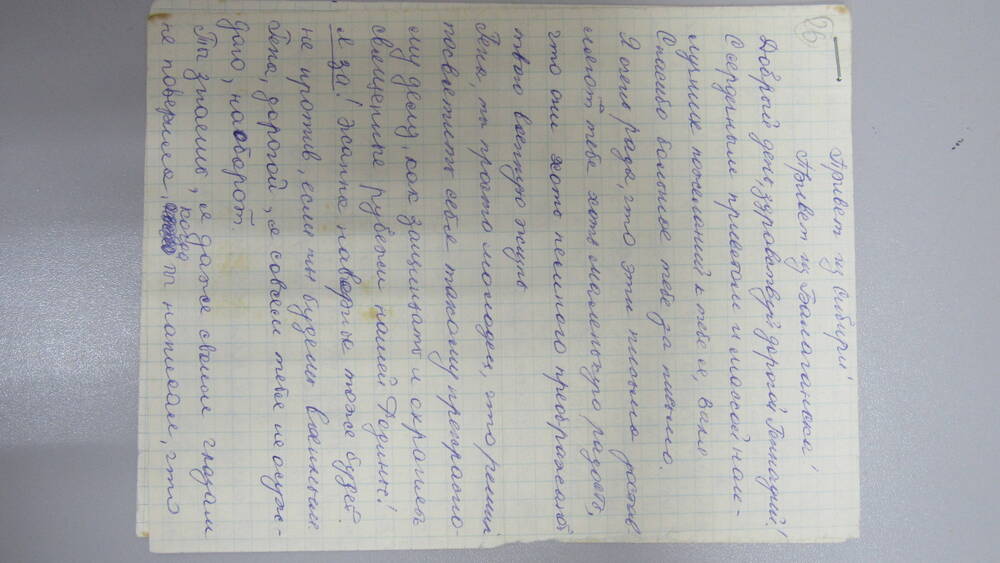 26
Привет из Сибири!
Привет из Балаганска!
Добрый день, здравствуй дорогой Геннадий!
С сердечным приветом и массой наи-
лучших пожеланий к тебе я, Валя
Спасибо большое тебе за письмо.
Я очень рада, что эти письма достав-
ляют тебе хоть маленькую радость,
что они хоть немного преображают
твою военную жизнь
Гена, ты просто молодец, что решил
посвятить себя такому прекрасно-
му делу, как защищать и охранять
священные рубежи нашей Родины!
Я за! Жанна наверное тоже будет
не против, если ты будешь военным
Гена, дорогой, я совсем тебя не осуж-
даю, наоборот.
Ты знаешь, я даже своим глазам
не поверила, когда ты написал, что